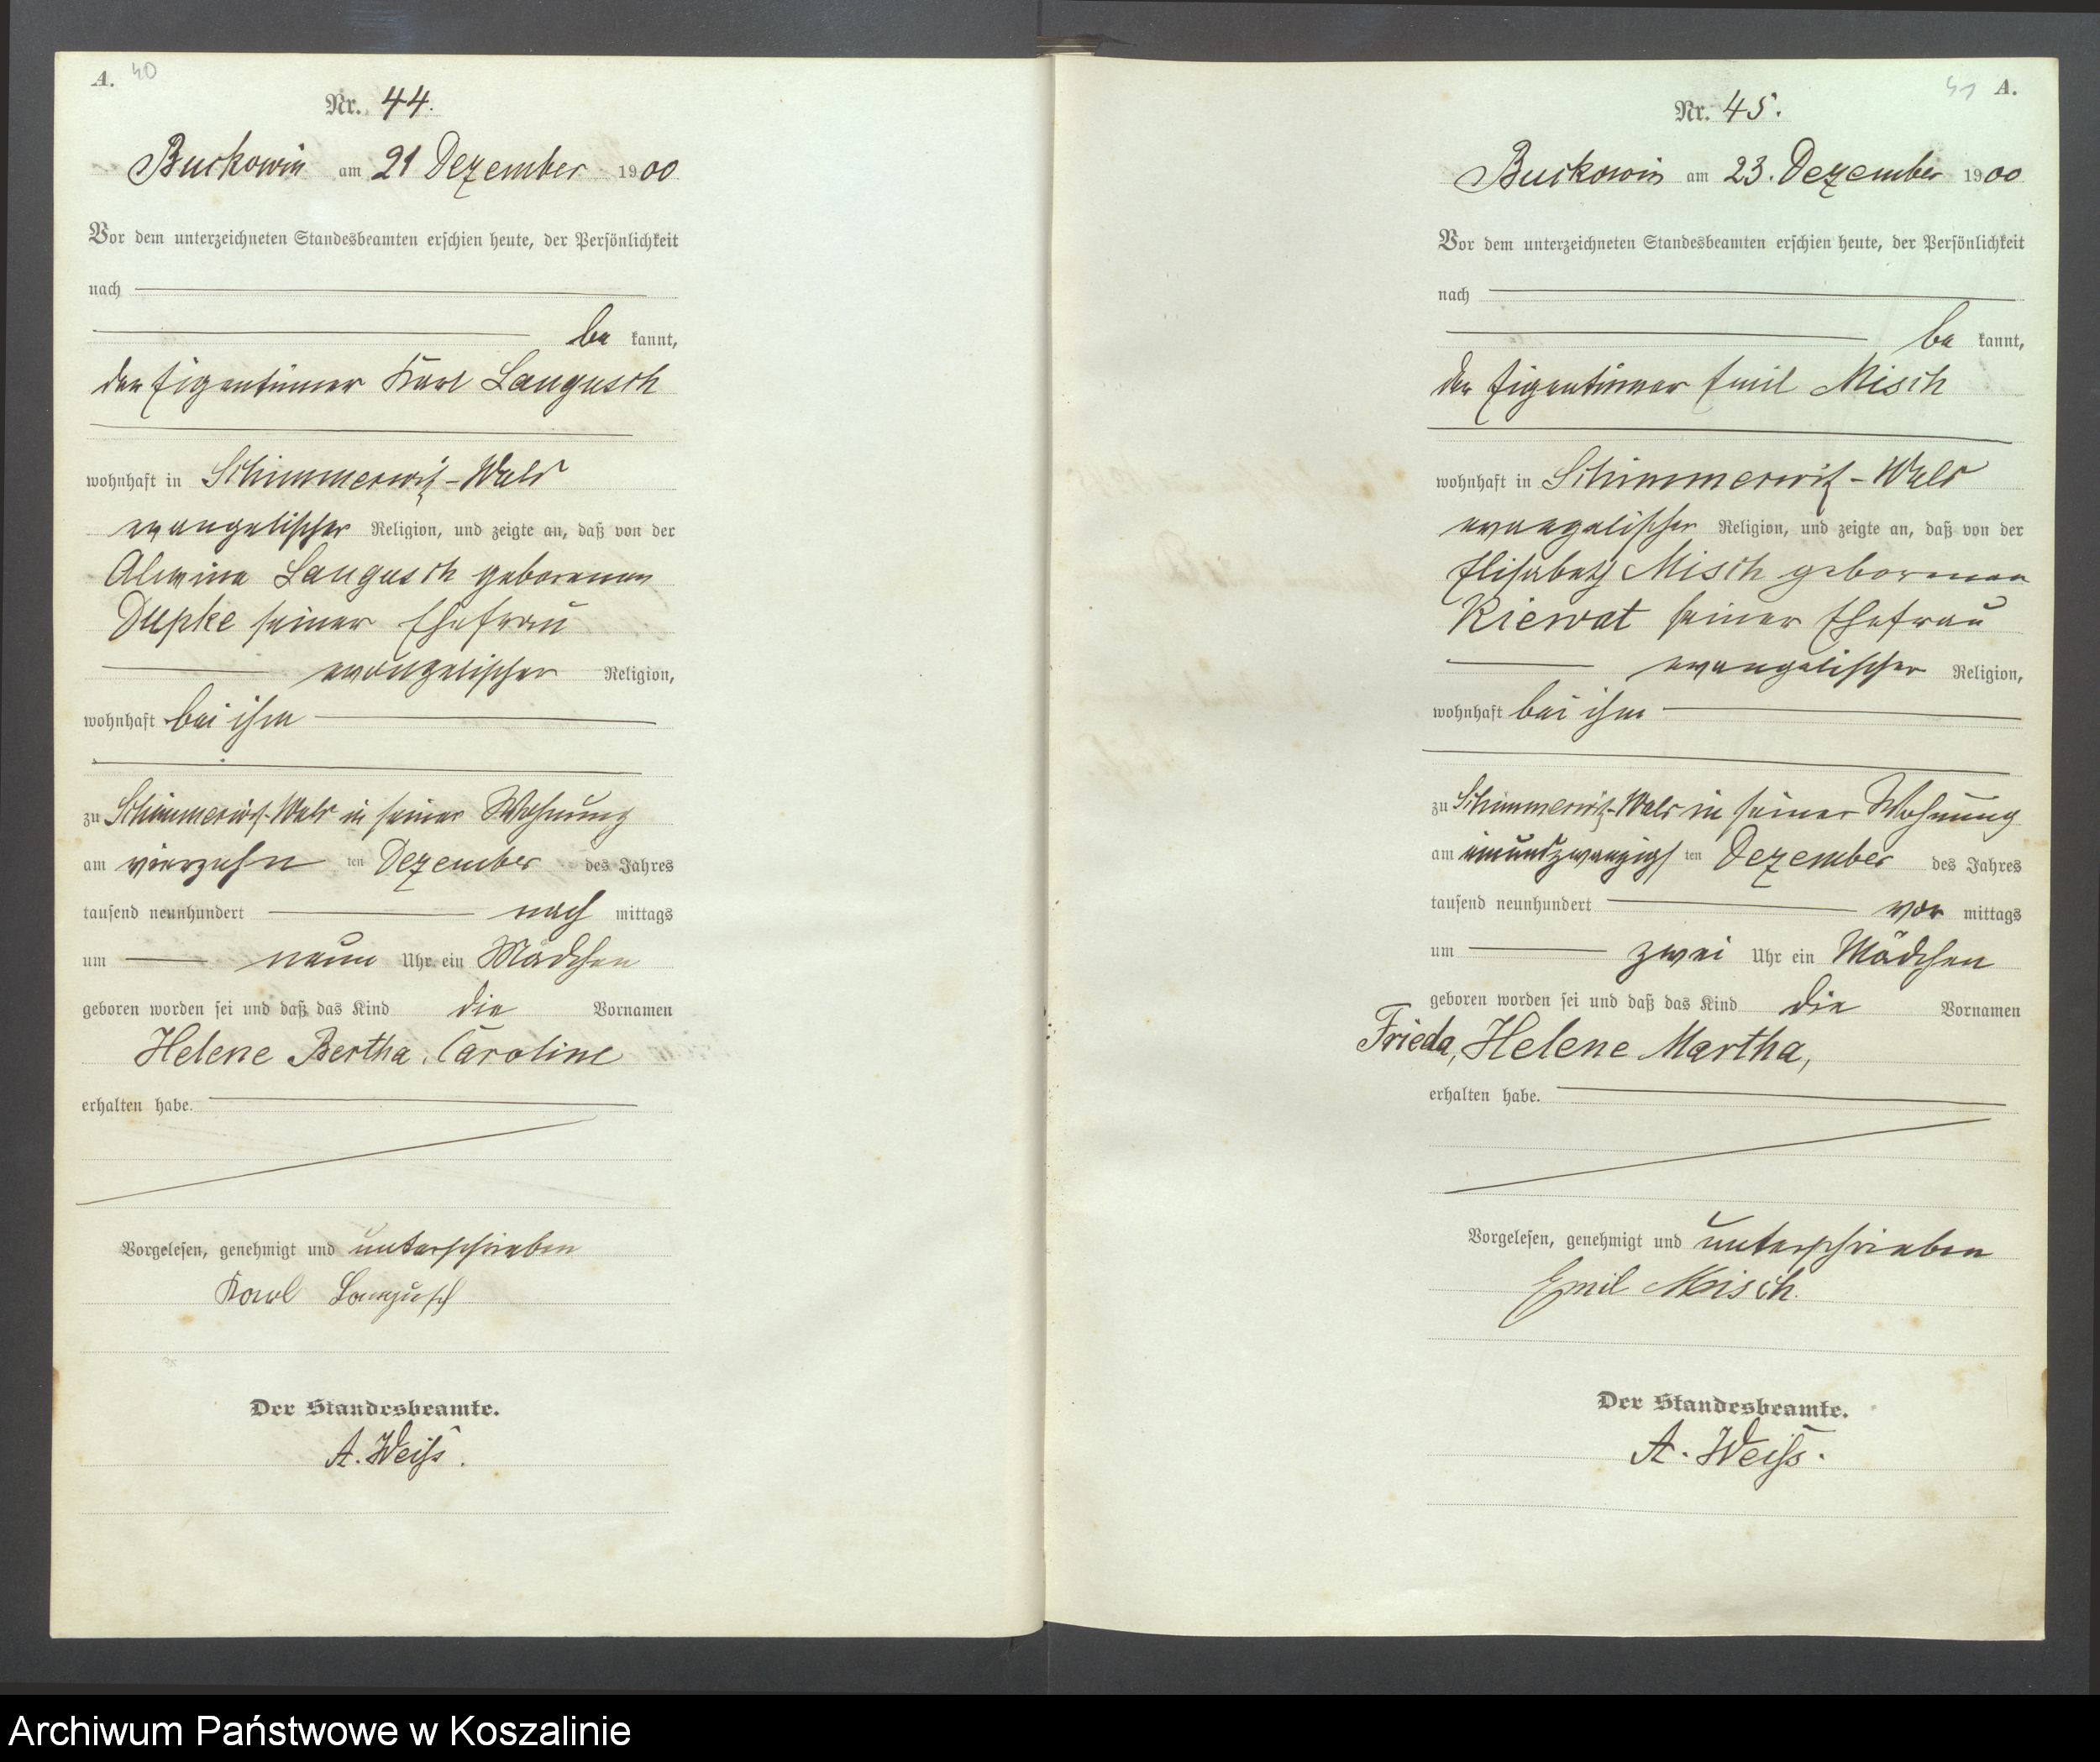 A. 40
Nr. 44.
Buckowin am 21 Dezember 1900
Vor dem unterzeichneten Standesbeamten erschien heute, der Persönlichkeit
nach
be kannt,
der Eigentümer Karl Langusch
wohnhaft in Schimmerwitz-Wald
evangelischer Religion, und zeigte an, daß von der
Alwine Langusch geborenen
Dupke seiner Ehefrau
evangelischer Religion,
wohnhaft bei ihm
zu Schimmerwitz-Wald in seiner Wohnung
am vierzehn ten Dezember des Jahres
tausend neunhundert nach mittags
um neun Uhr ein Mädchen
geboren worden sei und daß das Kind die Vornamen
Helene Bertha Caroline
erhalten habe.
Vorgelesen, genehmigt und unterschrieben
Karl Langusch
Der Standesbeamte.
A. Weiß.
41 A.
Nr. 45.
Buckowin am 23. Dezember 1900
Vor dem unterzeichneten Standesbeamten erschien heute, der Persönlichkeit
nach
be kannt,
der Eigentümer Emil Misch
wohnhaft in Schimmerwitz-Wald
evangelischer Religion, und zeigte an, daß von der
Elisabeth Misch geborenen
Kiewat seiner Ehefrau
evangelischer Religion,
wohnhaft bei ihm
zu Schimmerwitz-Wald in seiner Wohnung
am einundzwanzigs ten Dezember des Jahres
tausend neunhundert vor mittags
um zwei Uhr ein Mädchen
geboren worden sei und daß das Kind die Vornamen
Frieda, Helene Martha,
erhalten habe.
Vorgelesen, genehmigt und unterschrieben
Emil Misch.
Der Standesbeamte.
A. Weiß.
Archiwum Państwowe w Koszalinie